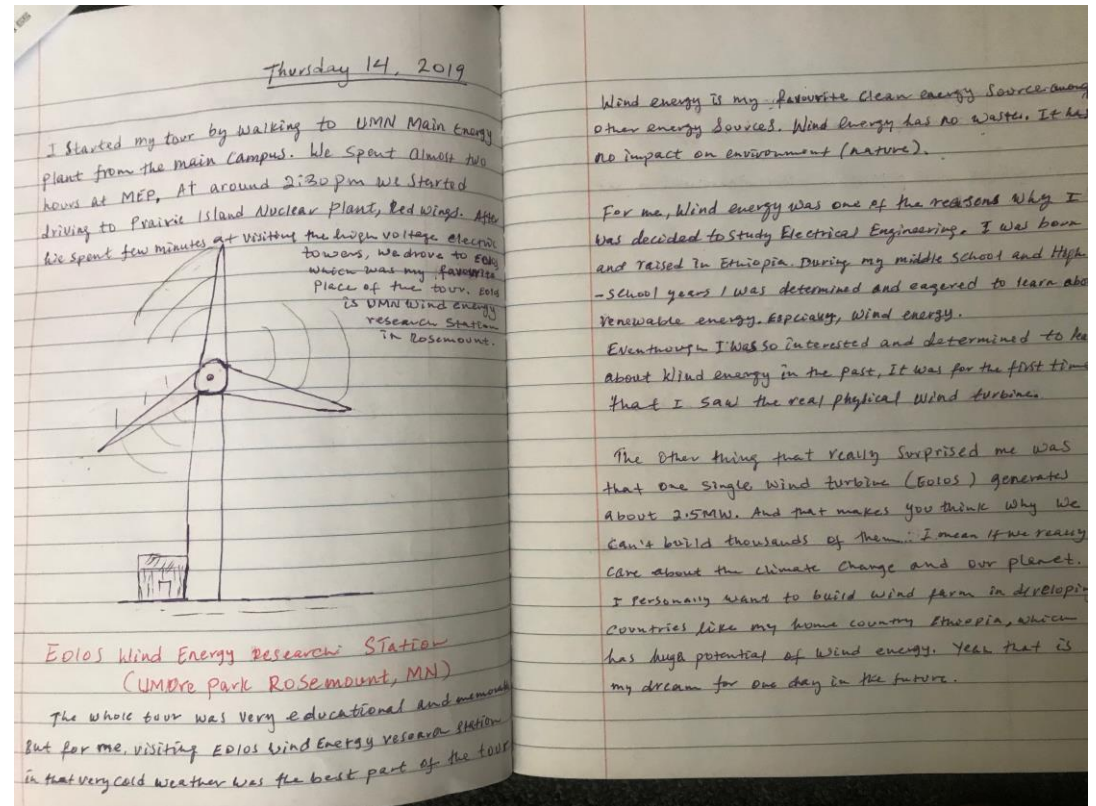 Thursday 14, 2019
I Started my tour by walking to UMN Main Energy
plant from the main campus. We Spent almost two
hours at MEP. At around 2:30 pm we started
driving to Prairie Island Nuclear Plant, Red wings. After
we spent few minutes at visiting the high voltage electric
towers, we drove to EOLOS
which was my favourite
Place of the tour. EOLOS
is UMN wind energy
research Station
in Rosemount.
EOLOS Wind Energy Research Station
(UMORE Park ROSEMOUNT, MN)
The whole tour was very educational and memorable
But for me, visiting EOLOS Wind Energy research station
in that very cold weather was the best part of the tour
Wind energy is my favourite clean energy source among
other energy sources. Wind energy has no wastes. It has
no impact on environment (nature).
For me, Wind energy was one of the reasons why I
was decided to study Electrical Engineering. I was born
and raised in Ethiopia. During my middle school and High
-school years I was determined and eagered to learn abo
renewable energy. Espciauy, wind energy.
Eventhough I was so interested and determined to le
about Wind energy in the past, It was for the first time
that I saw the real phylical wind turbine.
The other thing that really surprised me was
that one single wind turbine (EOLOS) generates
about 2.5MW. And that makes you think why we
can't build thousands of them. I mean if we really
care about the climate change and our planet.
I Personally want to build wind farm in developin
countries like my home country Ethiopia, which
has huge potential of wind energy. Yeah that is
my dream for one day in the future.